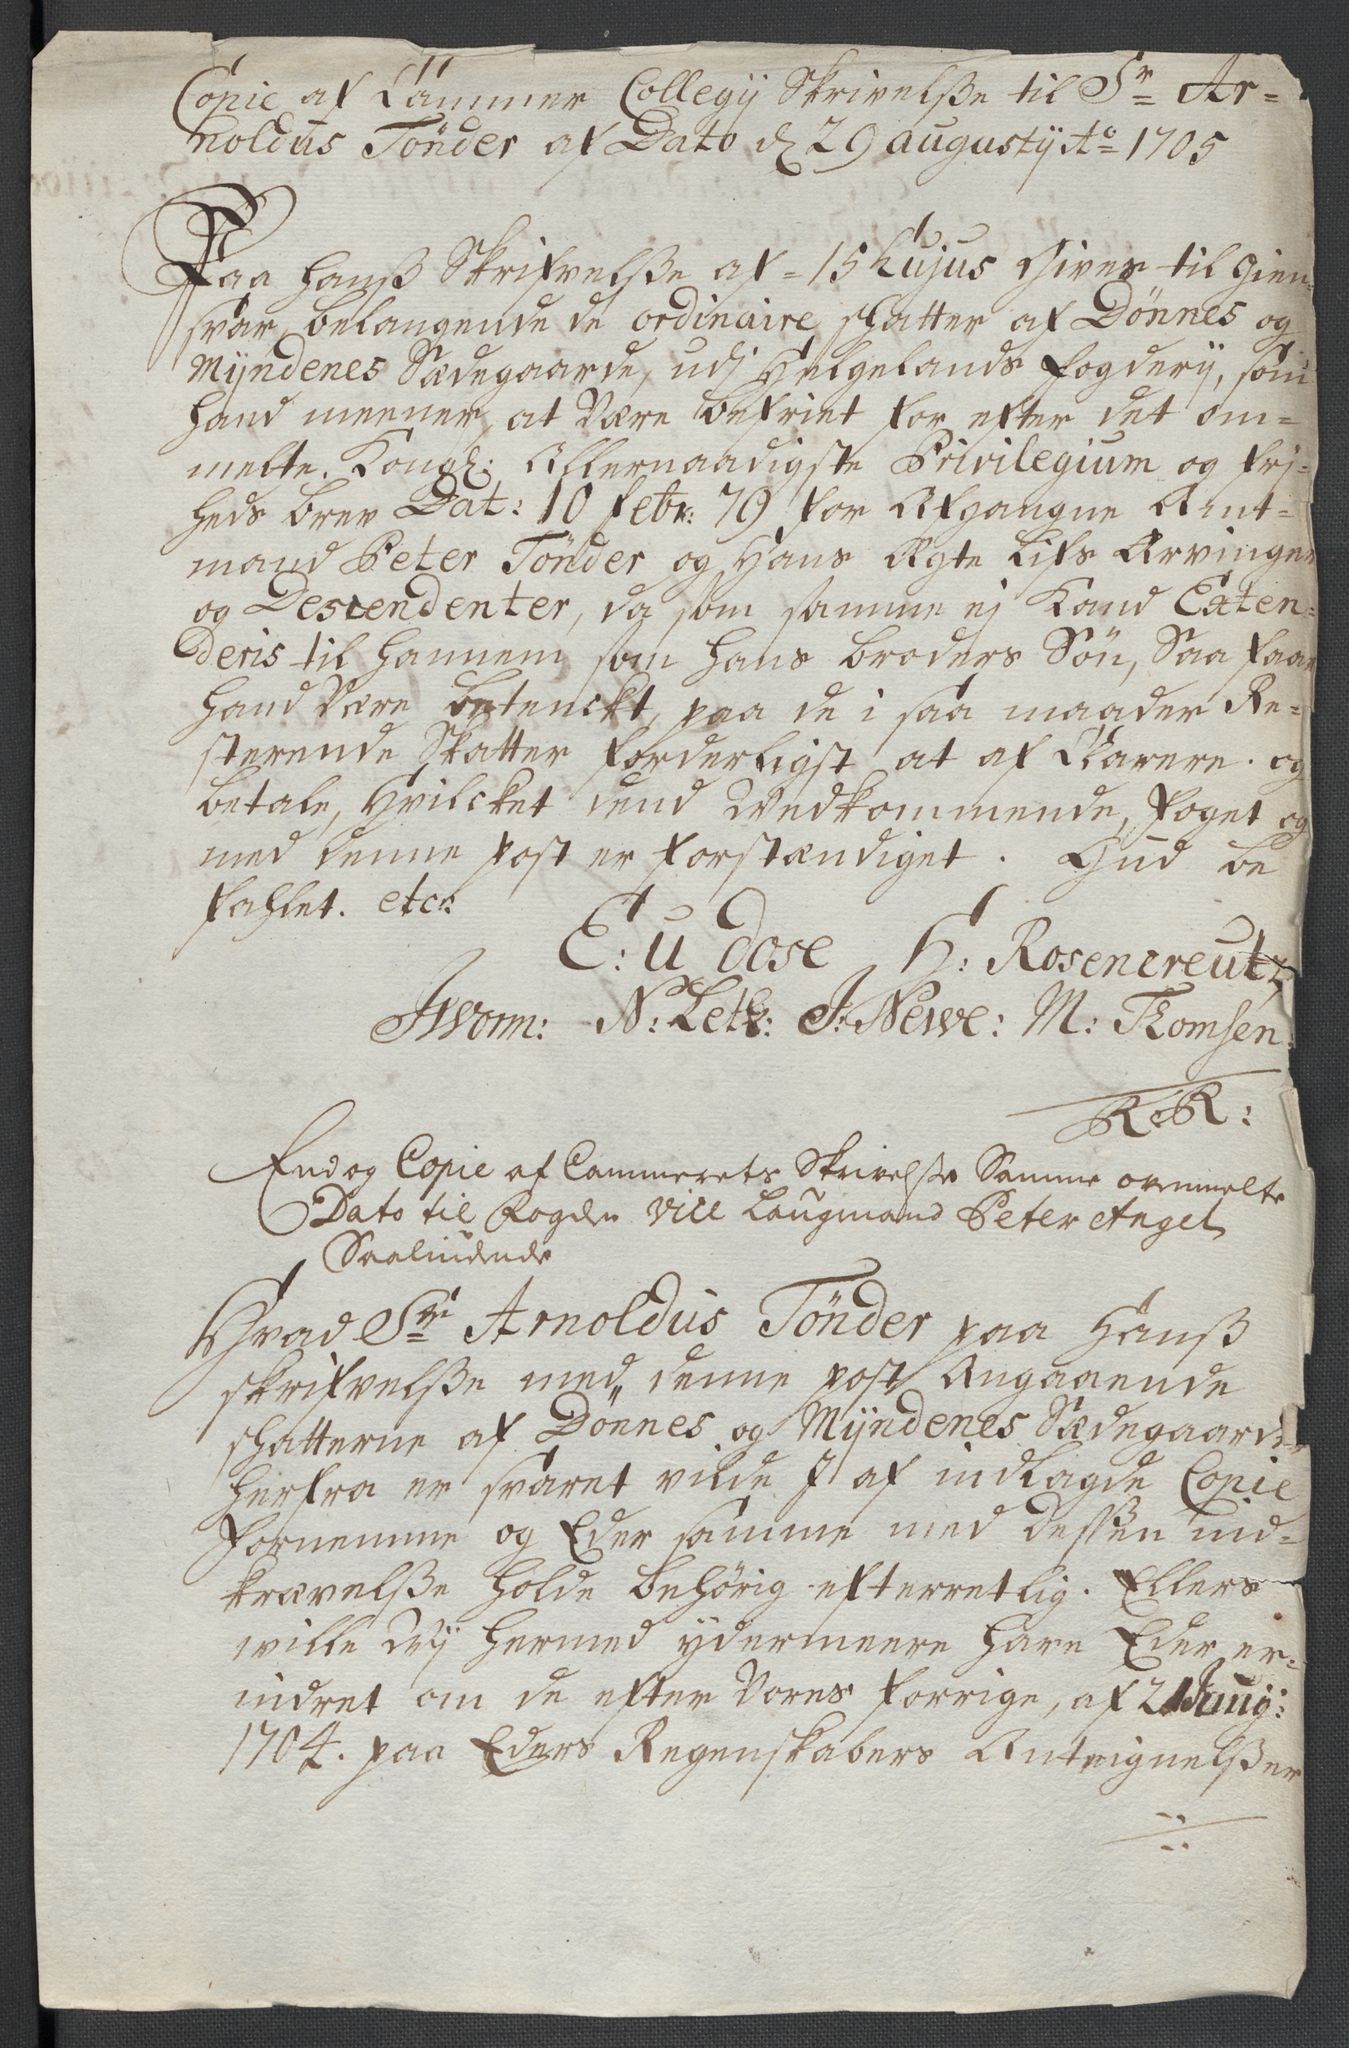 Copie af Cammer Collegij Skrivelße til Sr Ar=
noldus Tönder af Dato d 29 augustij Ao 1705
Paa hans Skrifvelße af 15 hujus Gives til gien
svar, belangende de ordinaire skatter af Dönnes og
Mÿndenes Sædegaarde, udj Helgelands fogderij, som
hand meener at være befriet for efter det om=
melte Kongl: Allernaadigste Privilegium og frj=
heds brev Dat: 10 febr: 79 for Afgangne Amt=
mand Peter Tönder og Hans Ægte Lifs Arvinger
og Descendenter, da som samme ej Kand Exten=
deris til hannem som hans broders Sön, Saa faar
hand være betenckt, paa de i saa maader Re=
sterende Skatter forderligst at af Clarere og
betale, hvilcket dend Vedkommende foget og
med denne post er forstændiget. Gud be
fahlet. etc:
E: U Dose H: Rosencreutz
JWorm: N: Letk: J: Newe: M: Thomsen
R: R:
End og Copie af Cammerets Skrivelße Samme ovenmelte
Dato til Fogden Vice Laugmand Peter Angel
Saaliudende
Hvad Sr Arnoldus Tönder paa Hanß
skrifvelße med denne post Angaaende
skatterne af Dönnes og Mÿndenes Sædegaarde
herfra er svaret vilde I af indlagde Copie
fornemme og Eder samme med dessen ind=
krævelße holde behörig efterretlig. Ellers
wille Wij hermed ydermeere have Eder er=
indret om de efter Vores forrige, af 21 Junij:
1704. paa Eders Regenskabers Antegnelßer